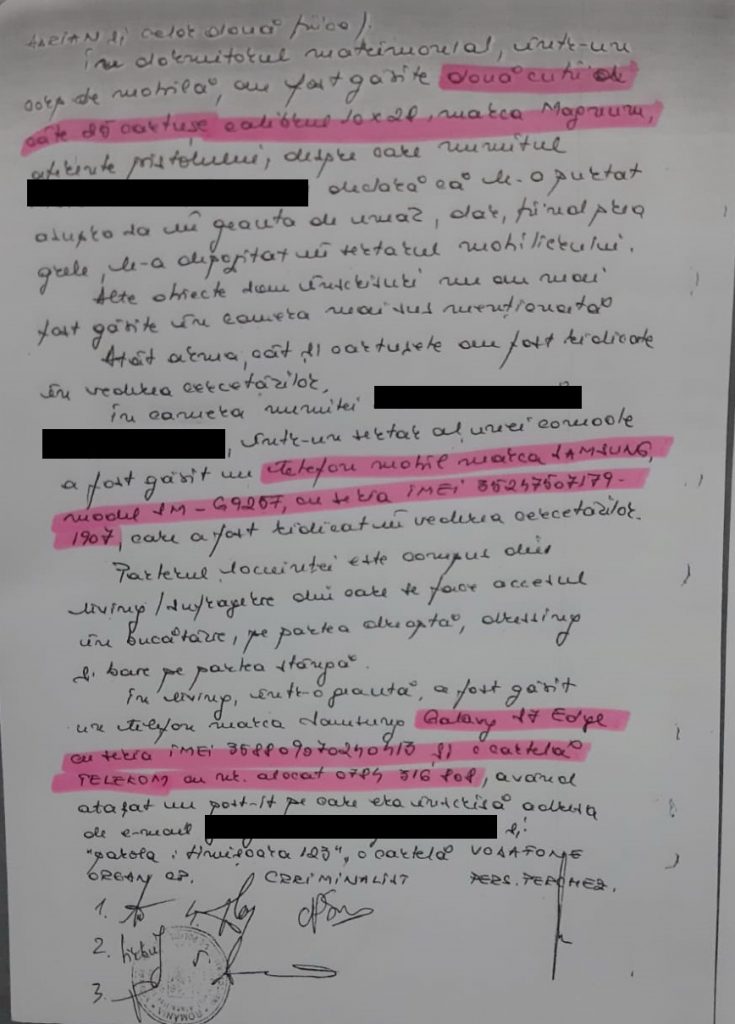 ADRIAN și celor două fiice).
În dormitorul matrimonial, într-un
corp de mobilă, au fost găsite două cutii de
câte 25 cartușe calibrul 10x28, marca Magnum,
aferente pistolului, despre care numitul
declară că le-a purtat
asupra sa în geanta de umăr, dar, fiind prea
grele, le-a depozitat în sertarul mobilierului.
Alte obiecte sau înscrisuri nu au mai
fost găsite în camera mai sus menționată
Atât arma, cât și cartușele au fost ridicate
în vederea cercetărilor.
În camera numitei
, într-un sertar al unei comode
a fost găsit un telefon mobil marca SAMSUNG,
model SM-G925F, cu seria IMEI 35247507179-
1907, care a fost ridicat în vederea cercetărilor.
Parterul locuinței este compus din
living/sufragerie din care se face accesul
în bucătărie, pe partea dreaptă, dressing
și baie pe partea stângă.
În living, într-o geantă, a fost găsit
un telefon marca Samsung Galaxy S7 Edge
cu seria IMEI 358809070240413 și o cartelă
TELEKOM cu nr. alocat 0784 316 808, având
atașat un post-it pe care era înscrisă adresa
de e-mail și
"parola: timisoara 123", o cartelă VODAFONE
ORGAN CP. CRIMINALIST PERS. PERCHEZ.
1.
4.
2.
3.
ROMÂNIA